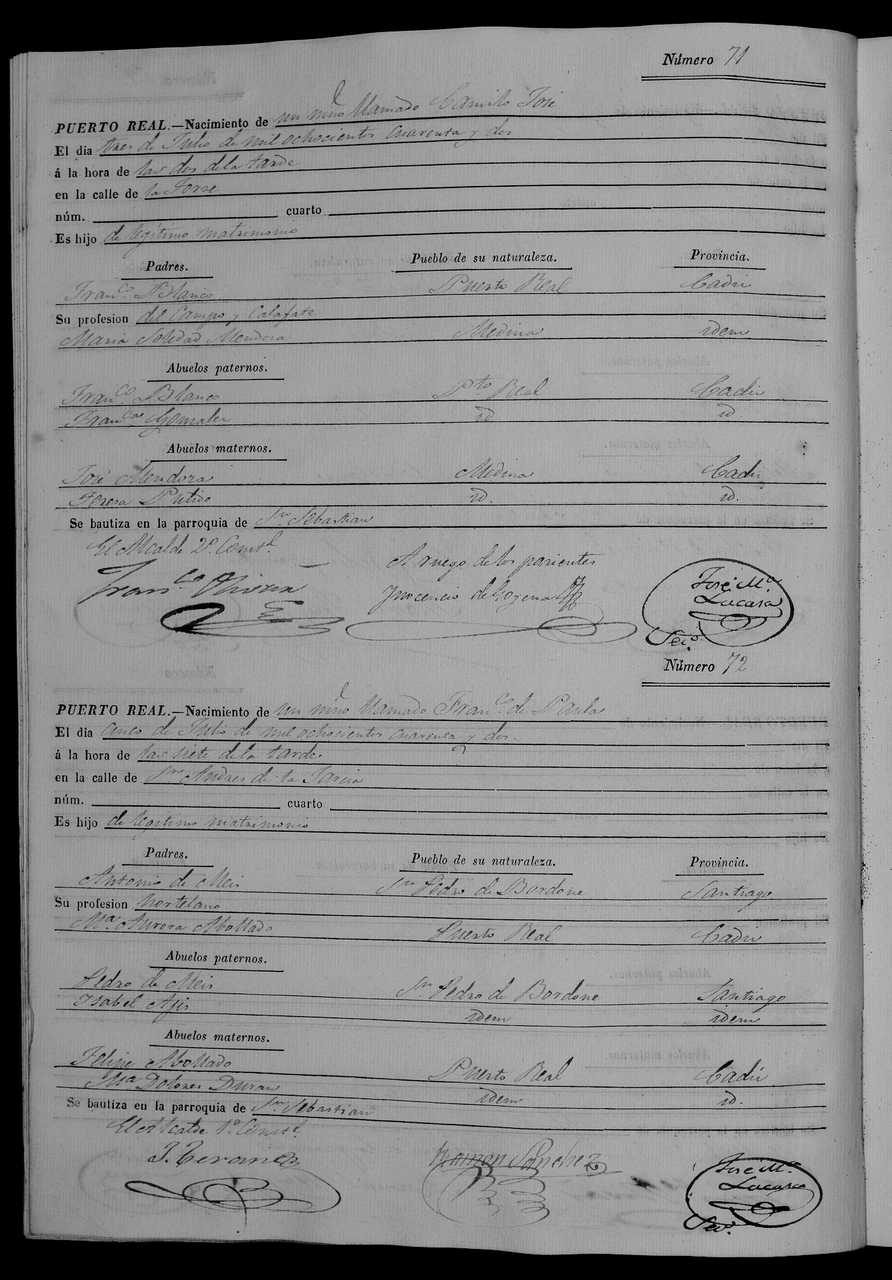 Número 71
PUERTO REAL.—Nacimiento de un niño llamado Camilo José
El dia tres de Julio de mil ochocientos cuarenta y dos
á la hora de las dos de la tarde
en la calle de la Torre
núm. cuarto
Es hijo de legítimo matrimonio
Padres. Pueblo de su naturaleza. Provincia.
Franco. Blanco Puerto Real Cadiz
Su profesion del Campo y Calafate
Maria Soledad Mendoza Medina idem
Abuelos paternos.
Franco. Blanco Pto Real Cadiz
Franca Gonzalez id id
Abuelos maternos.
José Mendoza Medina Cadiz
Teresa Pulido id. id.
Se bautiza en la parroquia de Sn Sebastian
El Alcalde 2º. Constl. A ruego de los parientes
Franco Inocencio de José Ma.
Lucara
Secº.
Número 72
PUERTO REAL.—Nacimiento de un niño llamado Franco. de Paula
El dia cinco de Julio de mil ochocientos cuarenta y dos.
á la hora de las siete de la tarde
en la calle de Sn Andres de la
núm. cuarto
Es hijo de legitimo matrimonio
Padres. Pueblo de su naturaleza. Provincia.
Antonio de Meis Sn Pedro de Bordone Santiago
Su profesion hortelano
Ma. Aurora Abollado Puerto Real Cadiz
Abuelos paternos.
Pedro de Meis Sn Pedro de Bordone Santiago
Isabel idem idem
Abuelos maternos.
Felipe Abollado Puerto Real Cadiz
Ma. Dolores Duran idem id.
Se bautiza en la parroquia de Sn Sebastian
El Alcalde 1º. Constl.
J. Teran Ramon Sanchez José Ma.
Lucara
Secº.